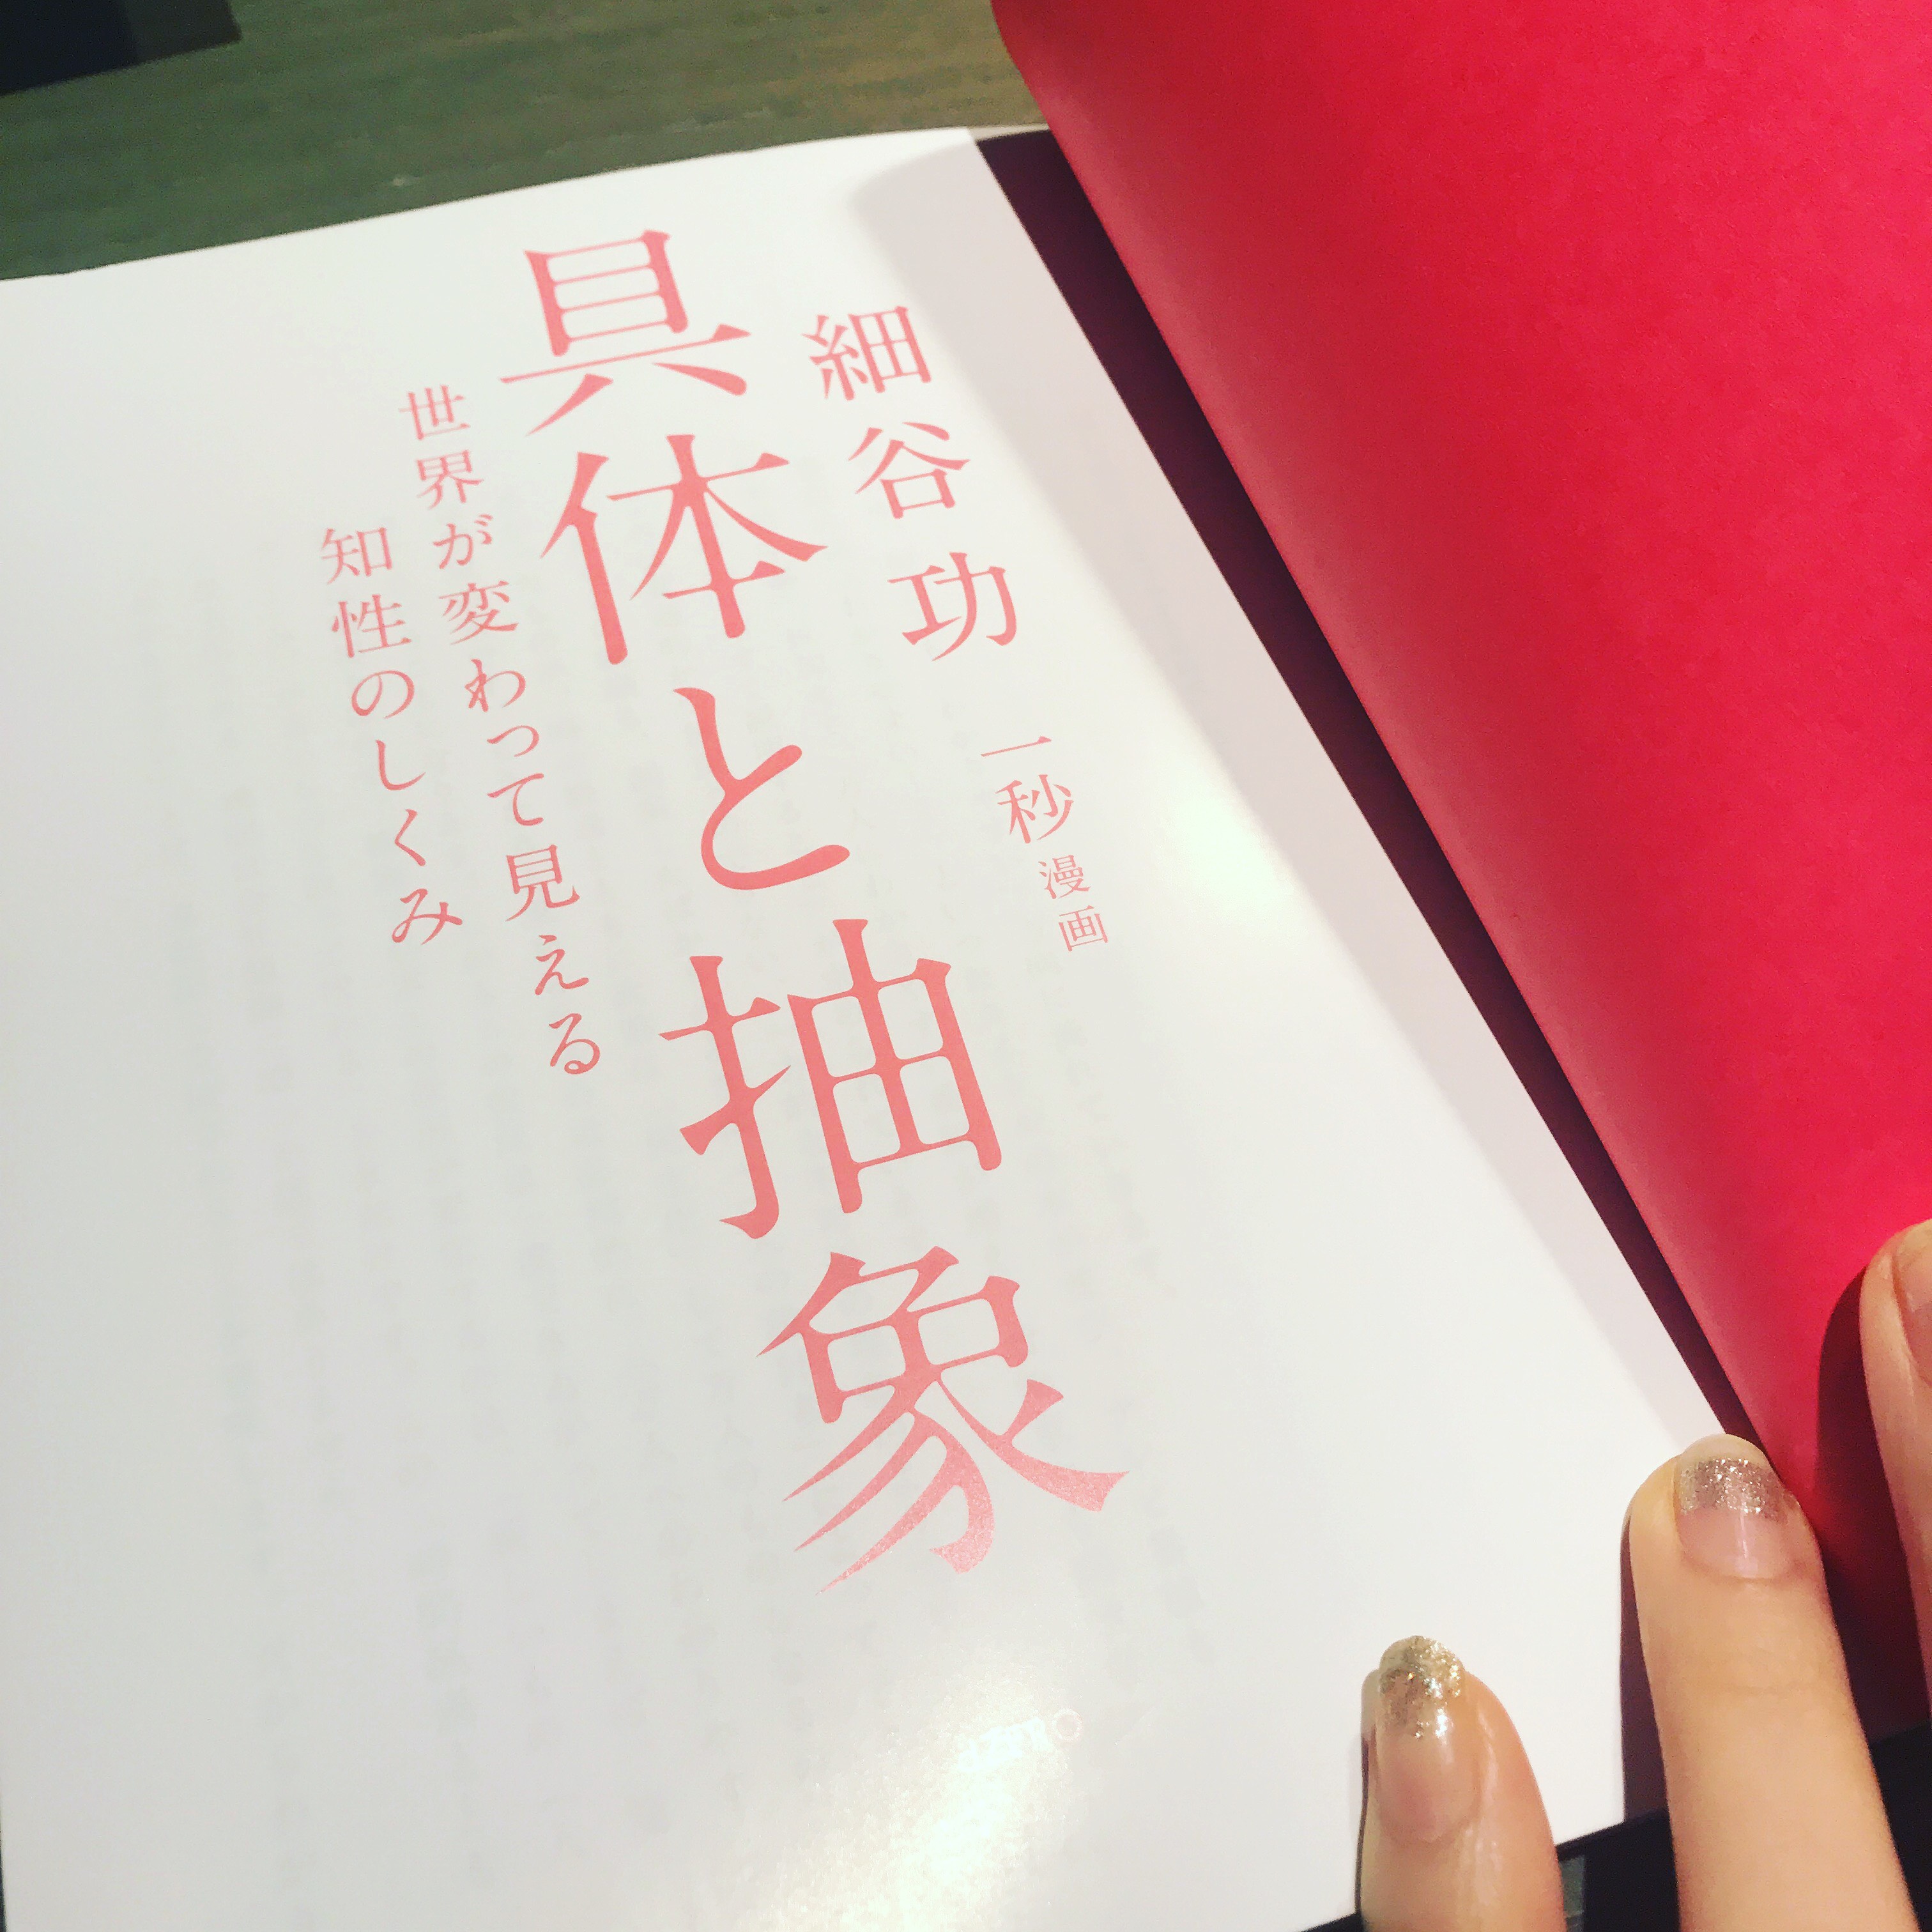 細谷 功 一秒 漫画
具体と抽象
世界が変わって見える
知性のしくみ